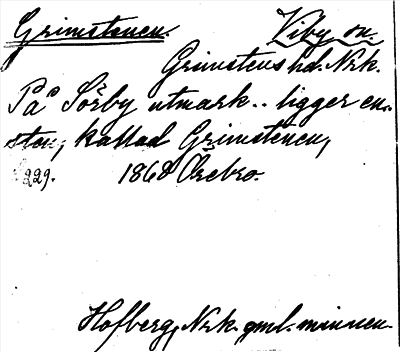 Grimstenen. Viby sn.
Grimstens hd. Nrk.
På Sörby utmark.. ligger en
sten, kallad Grimstenen,
s. 229. 1868 Örebro.
Hofberg, Nrk. gml. minnen.